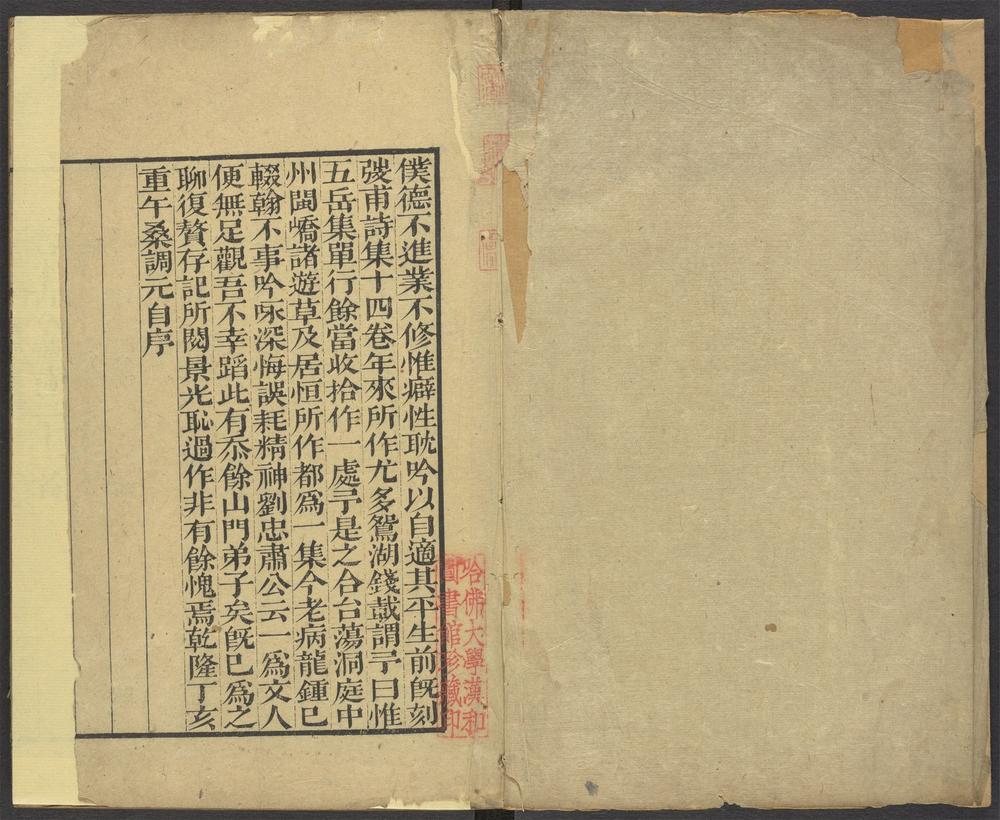 僕德不進業不修惟癖性耽吟以自適其平生前旣刻
弢甫詩集十四卷年來所作尤多鴛湖錢蘀謂予曰惟
五岳集單行餘當收拾作一處予是之合台蕩洞庭中
州閩嶠諸遊草及居恒所作都爲一集今老病龍鍾已
輟翰不事吟咏深悔誤耗精神劉忠肅公云一爲文人
便無足觀吾不幸蹈此有忝餘山門弟子矣旣已爲之
聊復贅存記所閱景光恥過作非有餘愧焉乾隆丁亥
重午桑調元自序
哈佛大學漢和
圖書館珍藏印